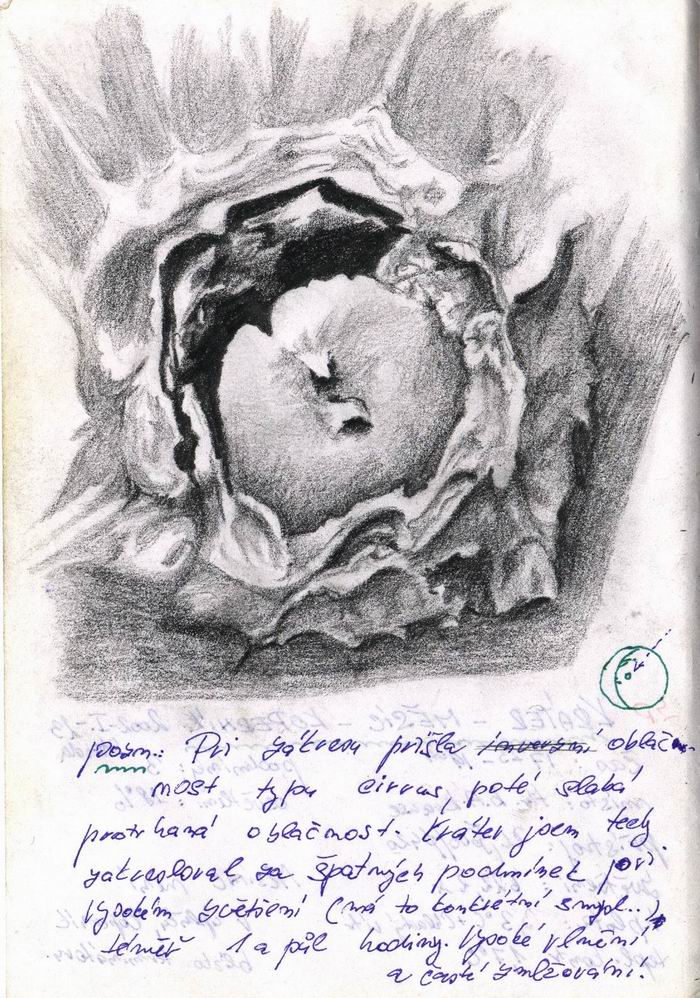 pozn.: Při zákresu přišla inverzní oblač-
nost typu cirrus, poté slabá
protrhaná oblačnost. Kráter jsem tedy
zakresloval za špatných podmínek při
vysokém zvětšení (má to konkrétní smysl..)
téměř 1 a půl hodiny. Vysoké vlnění
a časté zamlžování!